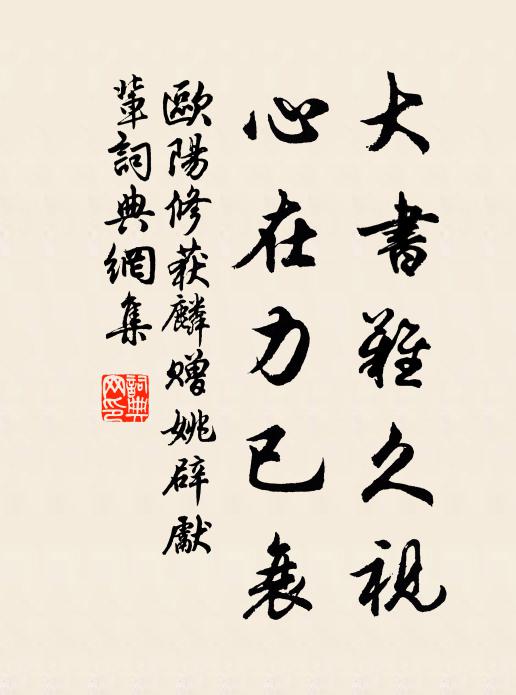 大書難久視
心在力已衰
歐陽修獲麟贈姚辟獻
輩詞典網集
詞典網印